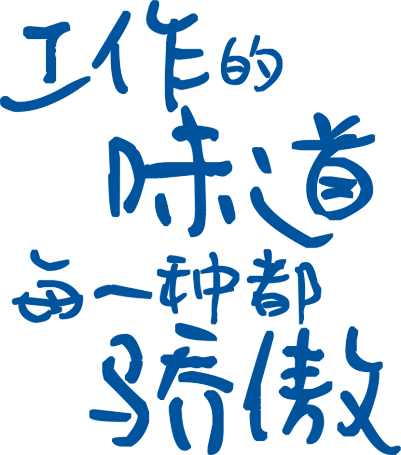 工作的
味道
每一种都
骄傲